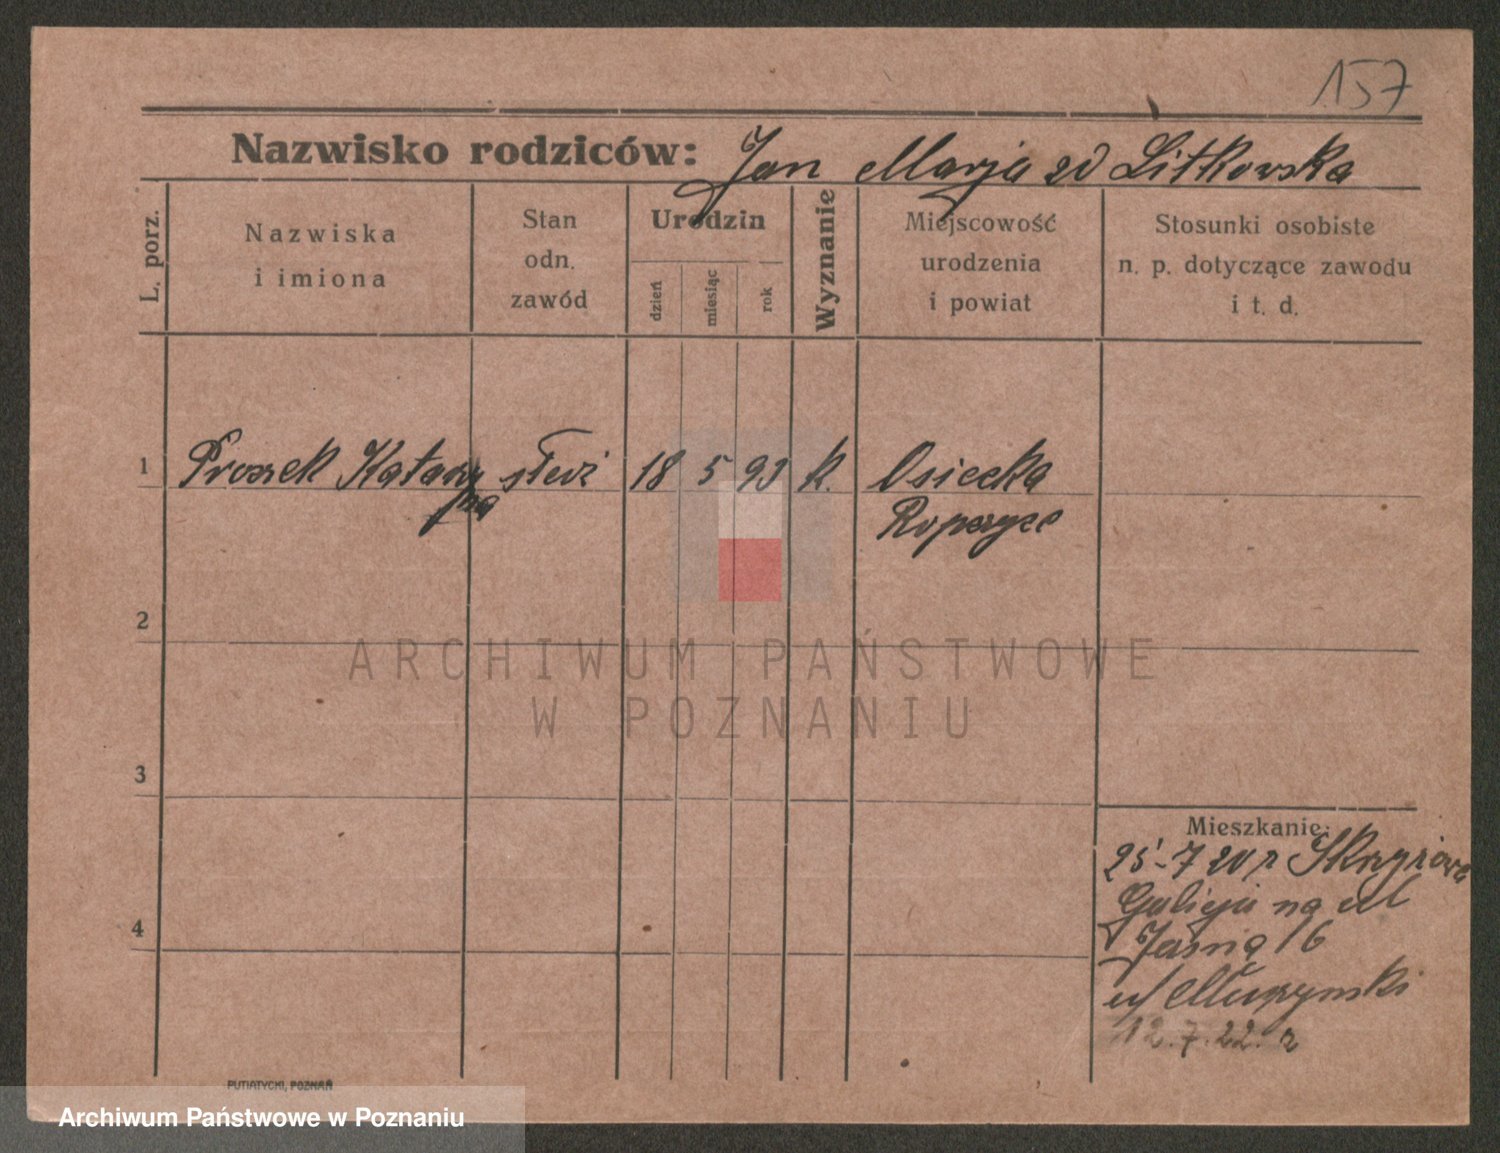 157
Nazwisko rodziców: Jan Marja zd Litkowska
L. porz.
Nazwiska
i imiona
Stan
odn.
zawód
Urodzin
dzień
miesiąc
rok
Wyznanie
Miejscowość
urodzenia
i powiat
Stosunki osobiste
n. p. dotyczące zawodu
i t. d.
1 Prosek Katarzy służ 18 5 93 k. Osiecka
na Ropczyce
2
ARCHIWUM PAŃSTWOWE
W POZNANIU
3
Mieszkanie:
25-7 20 r
Galicja na ul
4
Jasna 16
u/ Muszynski
12.7.22. r
PUTIATYCKI, POZNAŃ
Archiwum Państwowe w Poznaniu